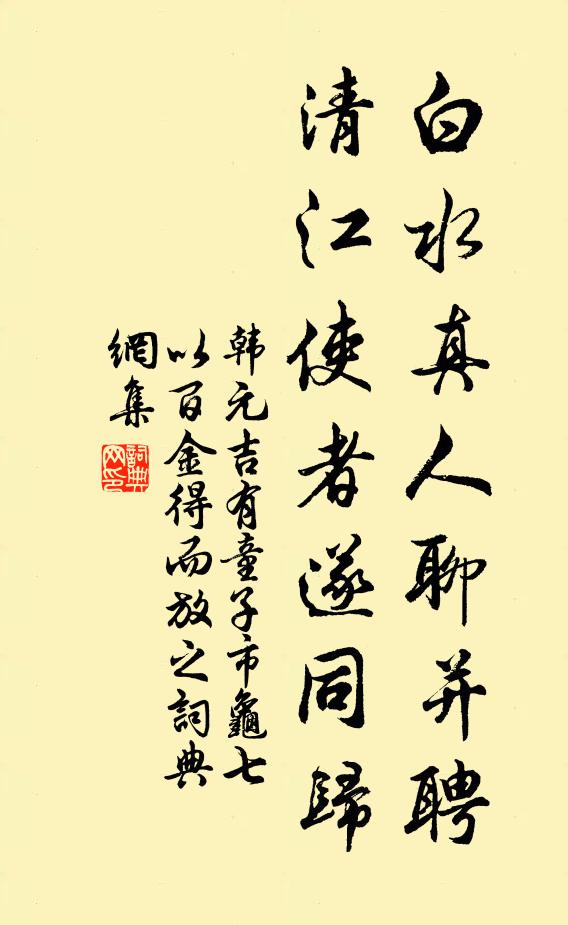 白水真人聊并聘
清江使者遂同歸
韩元吉有童子市龜七
以百金得而放之詞典
網集
詞典
网印